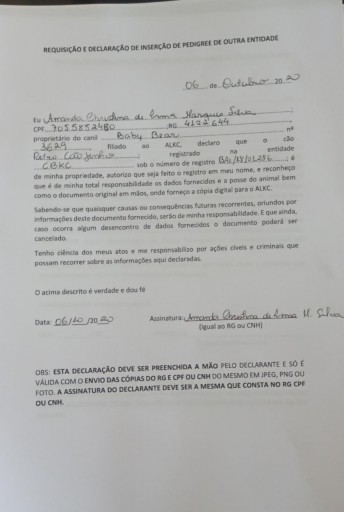 REQUISIÇÃO E DECLARAÇÃO DE INSERÇÃO DE PEDIGREE DE OUTRA ENTIDADE
06 de Outubro 20 20
Eu Amanda Christina de Lima Marques Silva
CPF 7055852480 RG 4122644
proprietário do canil Baby Bear nº
3629, filiado ao ALKC, declaro que o cão
registrado na entidade
CBKC, sob o número de registro, é
de minha propriedade, autorizo que seja feito o registro em meu nome, e reconheço
que é de minha total responsabilidade os dados fornecidos e a posse do animal bem
como o documento original em mãos, onde forneço a cópia digital para o ALKC.
Sabendo-se que quaisquer causas ou consequências futuras recorrentes, oriundos por
informações deste documento fornecido, serão de minha responsabilidade. E que ainda,
caso ocorra algum desencontro de dados fornecidos o documento poderá ser
cancelado.
Tenho ciência dos meus atos e me responsabilizo por ações cíveis e criminais que
possam recorrer sobre as informações aqui declaradas.
O acima descrito é verdade e dou fé
Data: 06/10/20 20 Assinatura: Amanda Christina de Lima M. Silva
(igual ao RG ou CNH)
OBS: ESTA DECLARAÇÃO DEVE SER PREENCHIDA A MÃO PELO DECLARANTE E SÓ É
VÁLIDA COM O ENVIO DAS CÓPIAS DO RG E CPF OU CNH DO MESMO EM JPEG, PNG OU
FOTO. A ASSINATURA DO DECLARANTE DEVE SER A MESMA QUE CONSTA NO RG CPF
OU CNH.